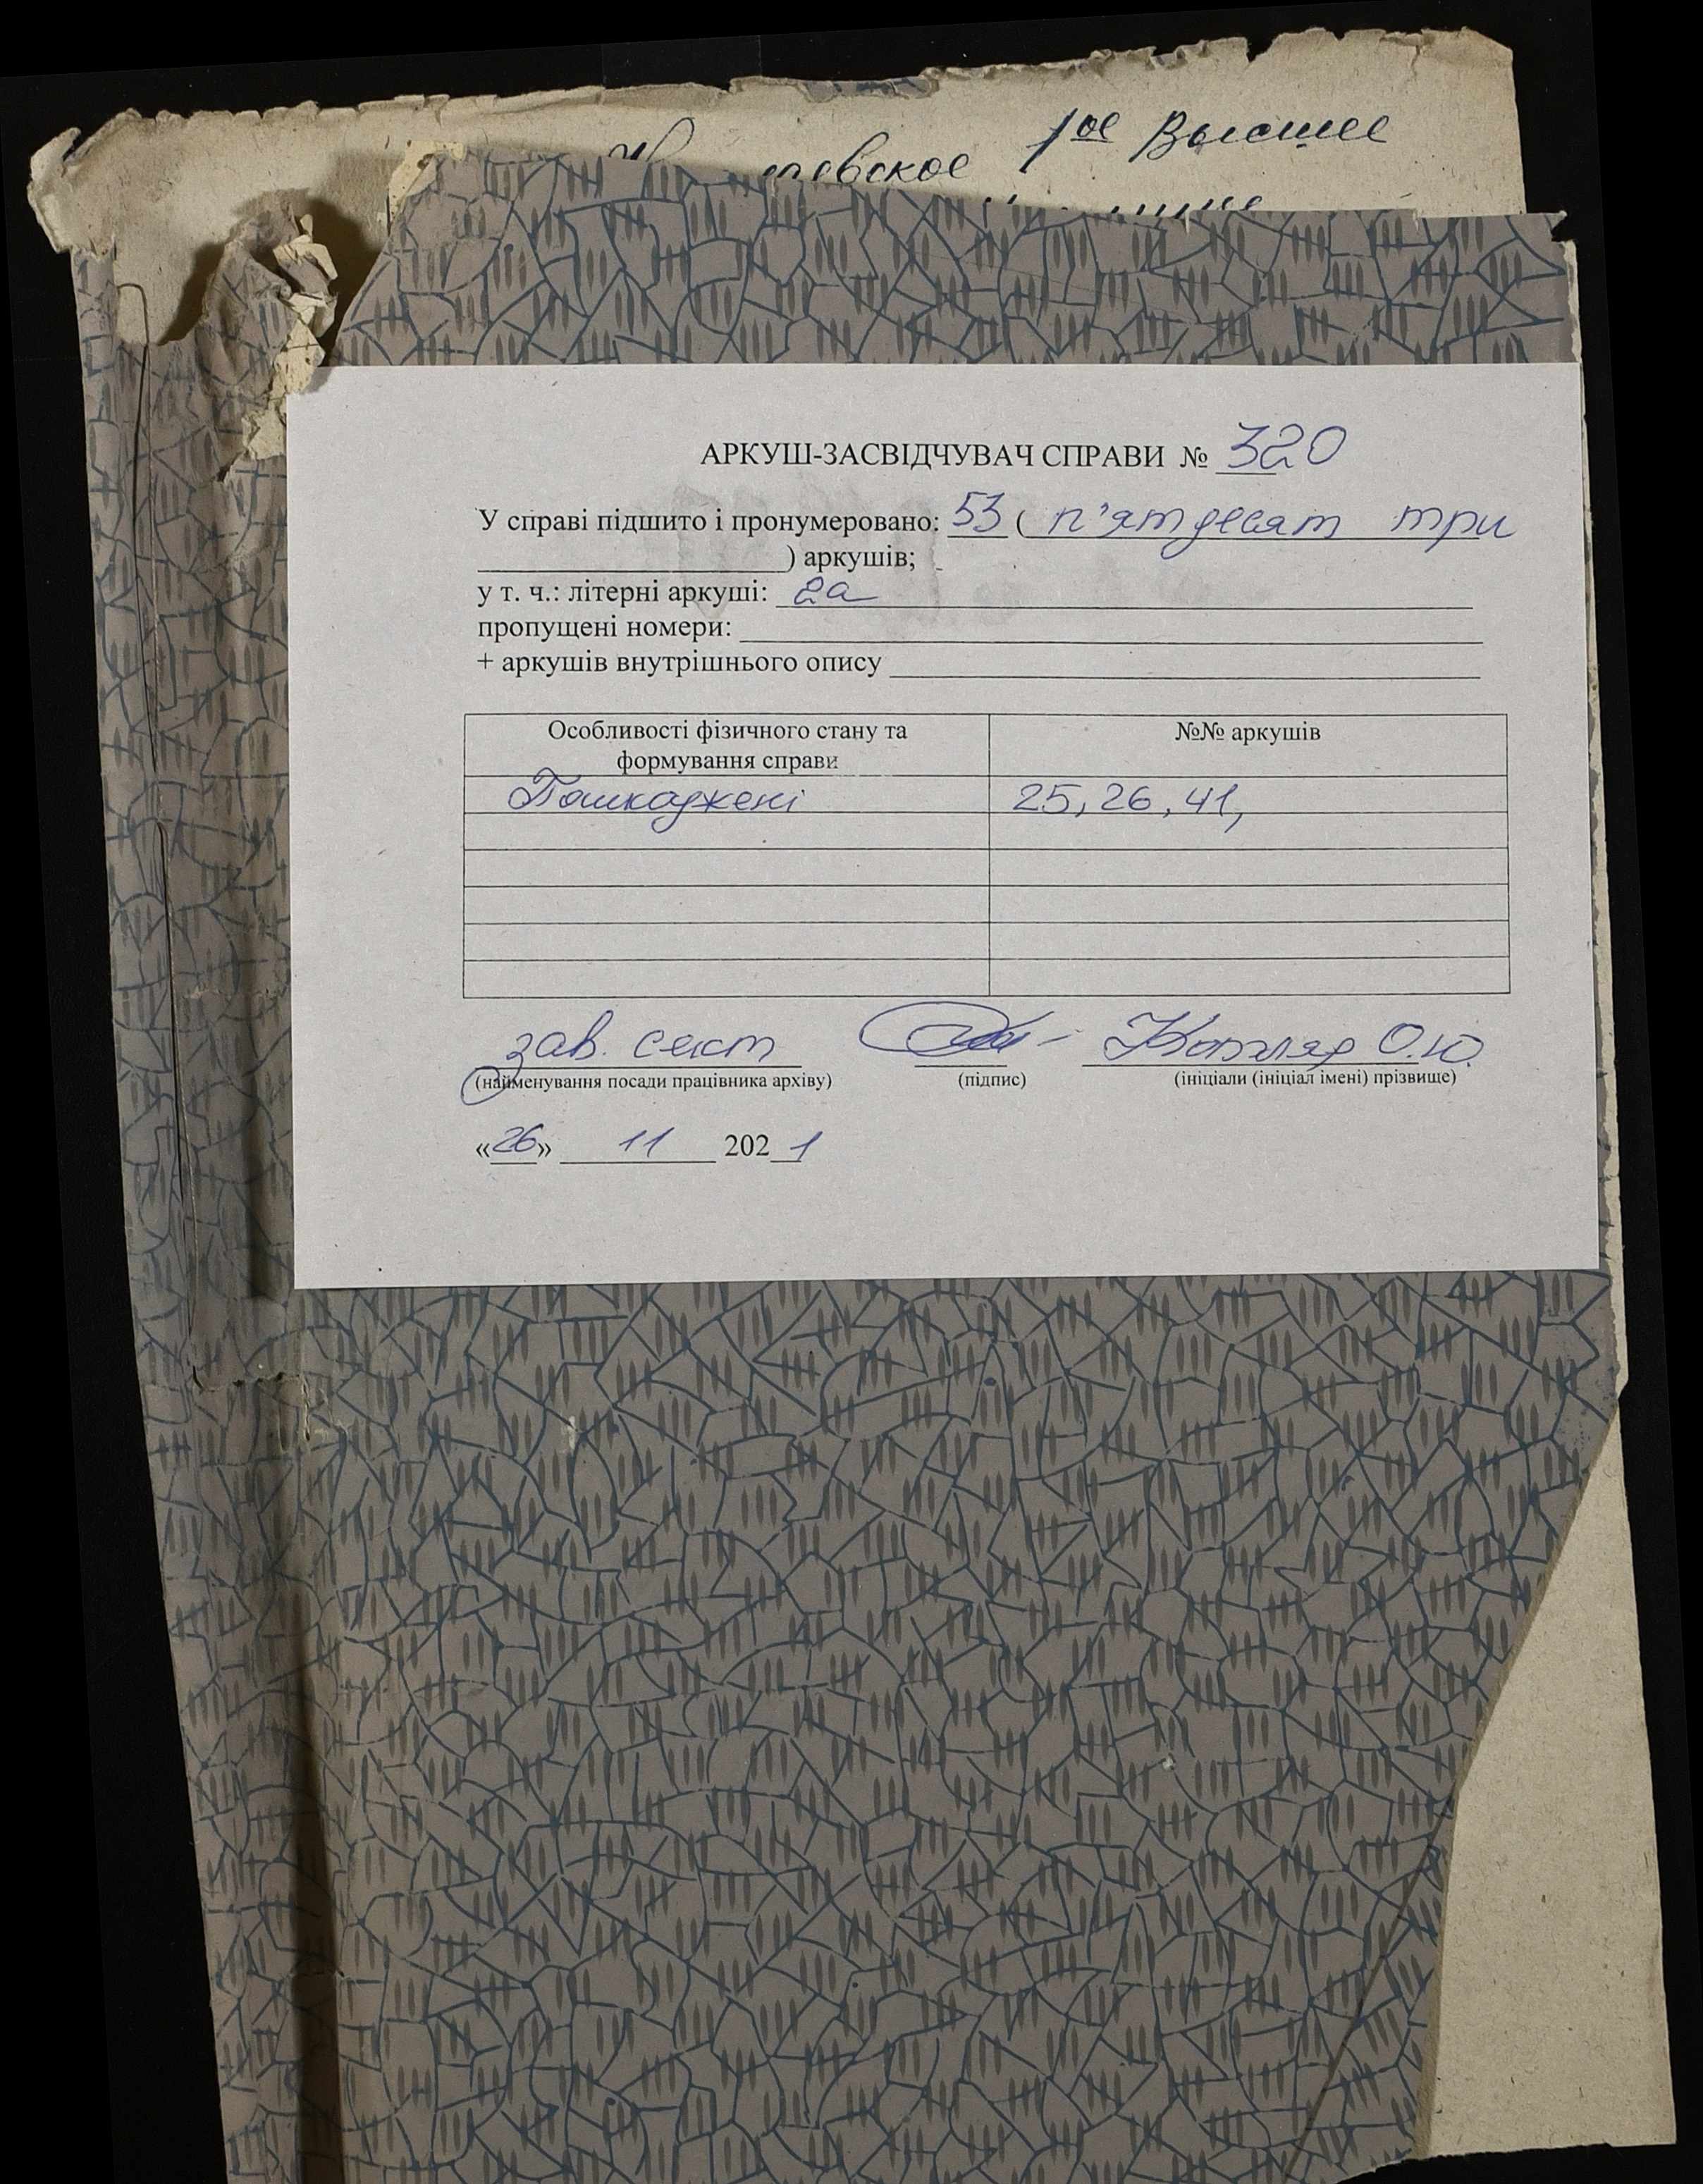 1ое Высшее
АРКУШ-ЗАСВІДЧУВАЧ СПРАВИ № 320
У справі підшито і пронумеровано: 53 ( п'ятдесят три
) аркушів;
у т. ч.: літерні аркуші: 2а
пропущені номери:
+ аркушів внутрішнього опису
Особливості фізичного стану та формування справи №№ аркушів
Пошкоджені 25, 26, 41,
зав. сект Котляр О.Ю.
(найменування посади працівника архіву) (підпис) (ініціали (ініціал імені) прізвище)
«26» 11 2021